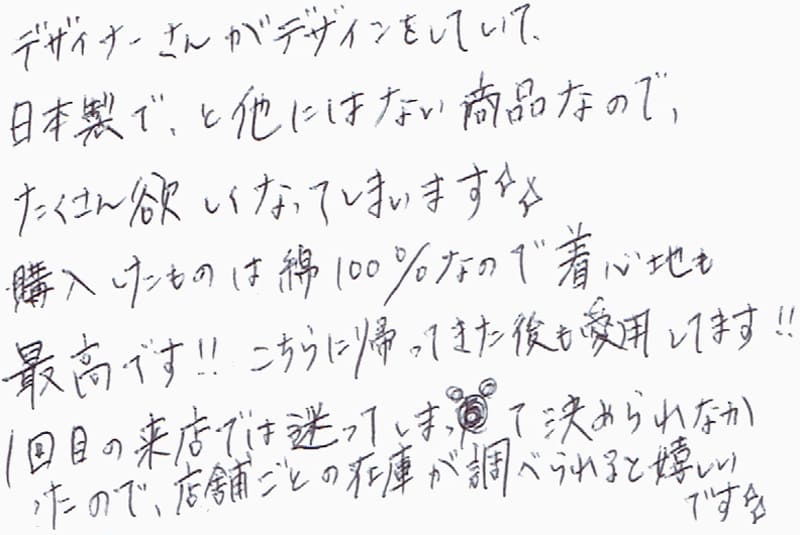 デザイナーさんがデザインをしていて、
日本製で、と他にはない商品なので、
たくさん欲しくなってしまいます☆☆
購入したものは綿100%なので着心地も
最高です!! こちらに帰ってきた後も愛用してます!!
1回目の来店では迷ってしまって決められなか
ったので、店舗ごとの在庫が調べられると嬉しい
です☆☆